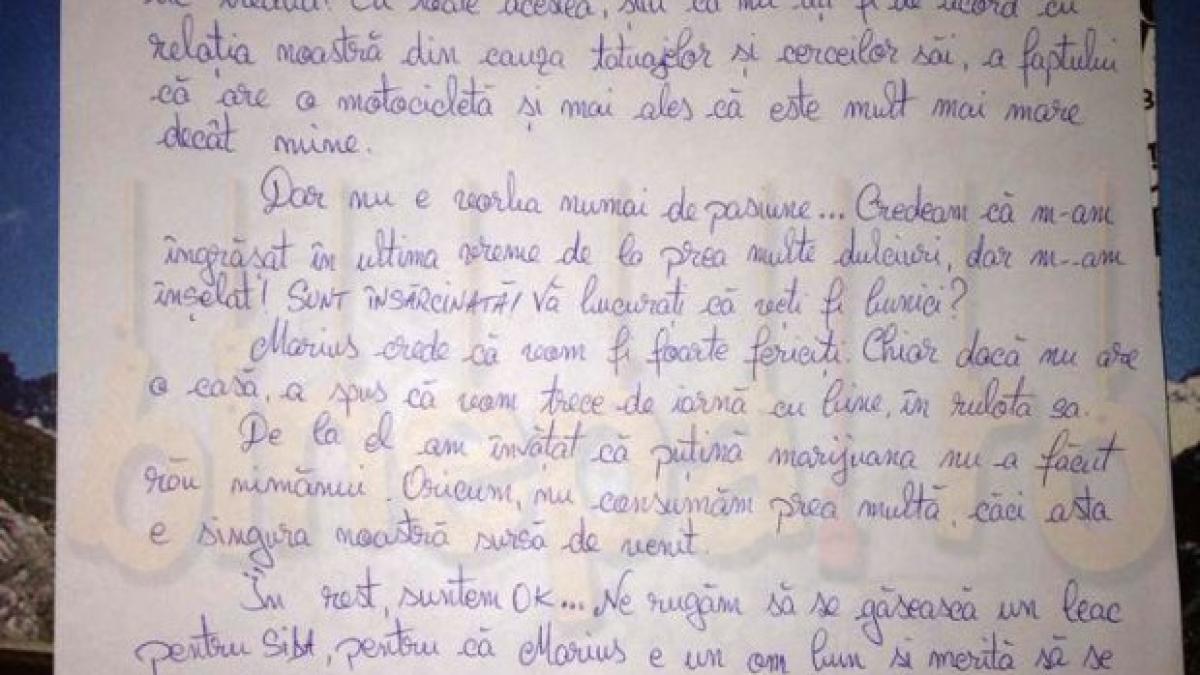 acesea, știu că nu ați fi de acord cu
relația noastră din cauza tatuajelor și cerceilor săi, a faptului
că are o motocicletă și mai ales că este mult mai mare
decât mine.
Dar nu e vorba numai de pasiune... Credeam că m-am
îngrășat în ultima vreme de la prea multe dulciuri, dar m-am
înșelat! SUNT ÎNSĂRCINATĂ! Vă bucurați că veți fi bunici?
Marius crede că vom fi foarte fericiți. Chiar dacă nu are
o casă, a spus că vom trece de iarnă cu bine, în rulota sa.
De la el am învățat că puțină marijuana nu a făcut
rău nimănui. Oricum, nu consumăm prea multă, căci asta
e singura noastră sursă de venit.
În rest, suntem OK... Ne rugăm să se găsească un leac
pentru SIDA, pentru că Marius e un om bun si merită să se